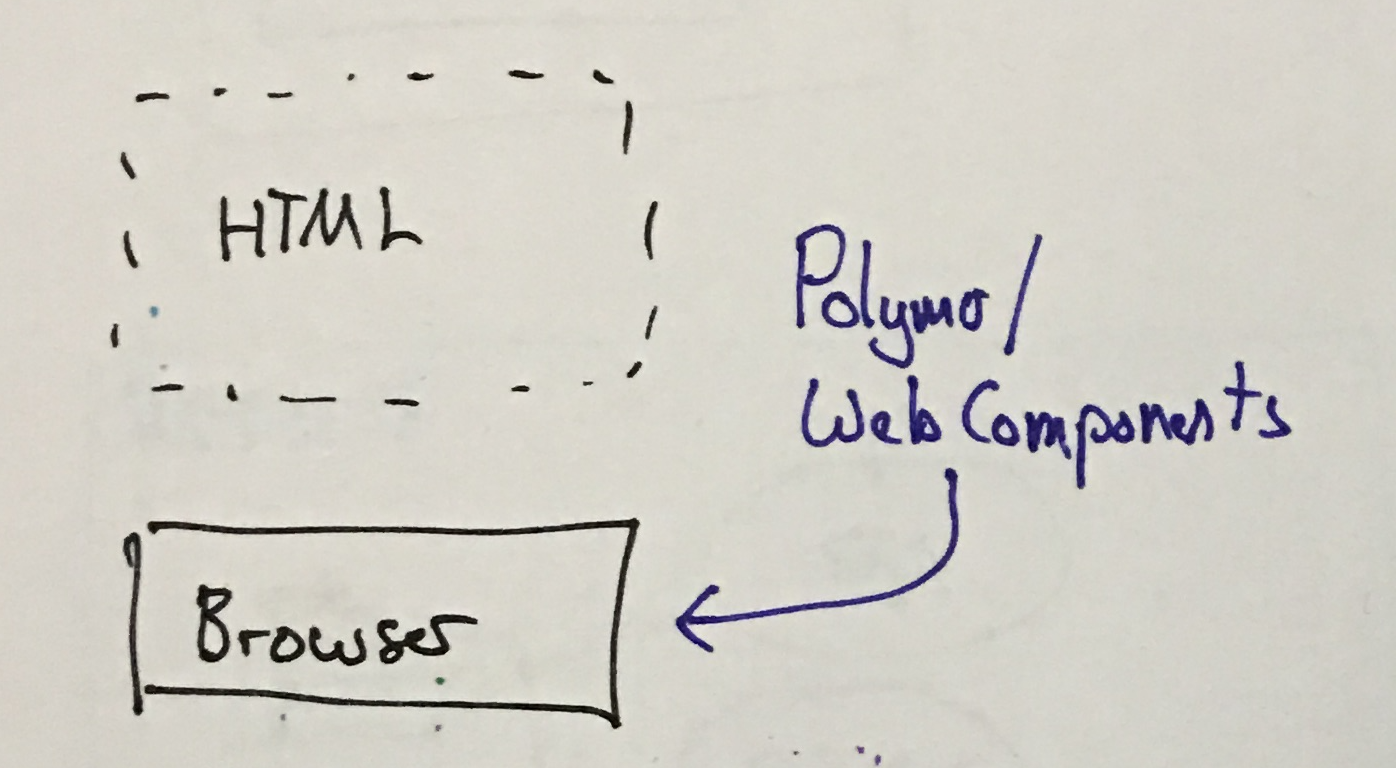 HTML
Polymer/
Web Components
Browser